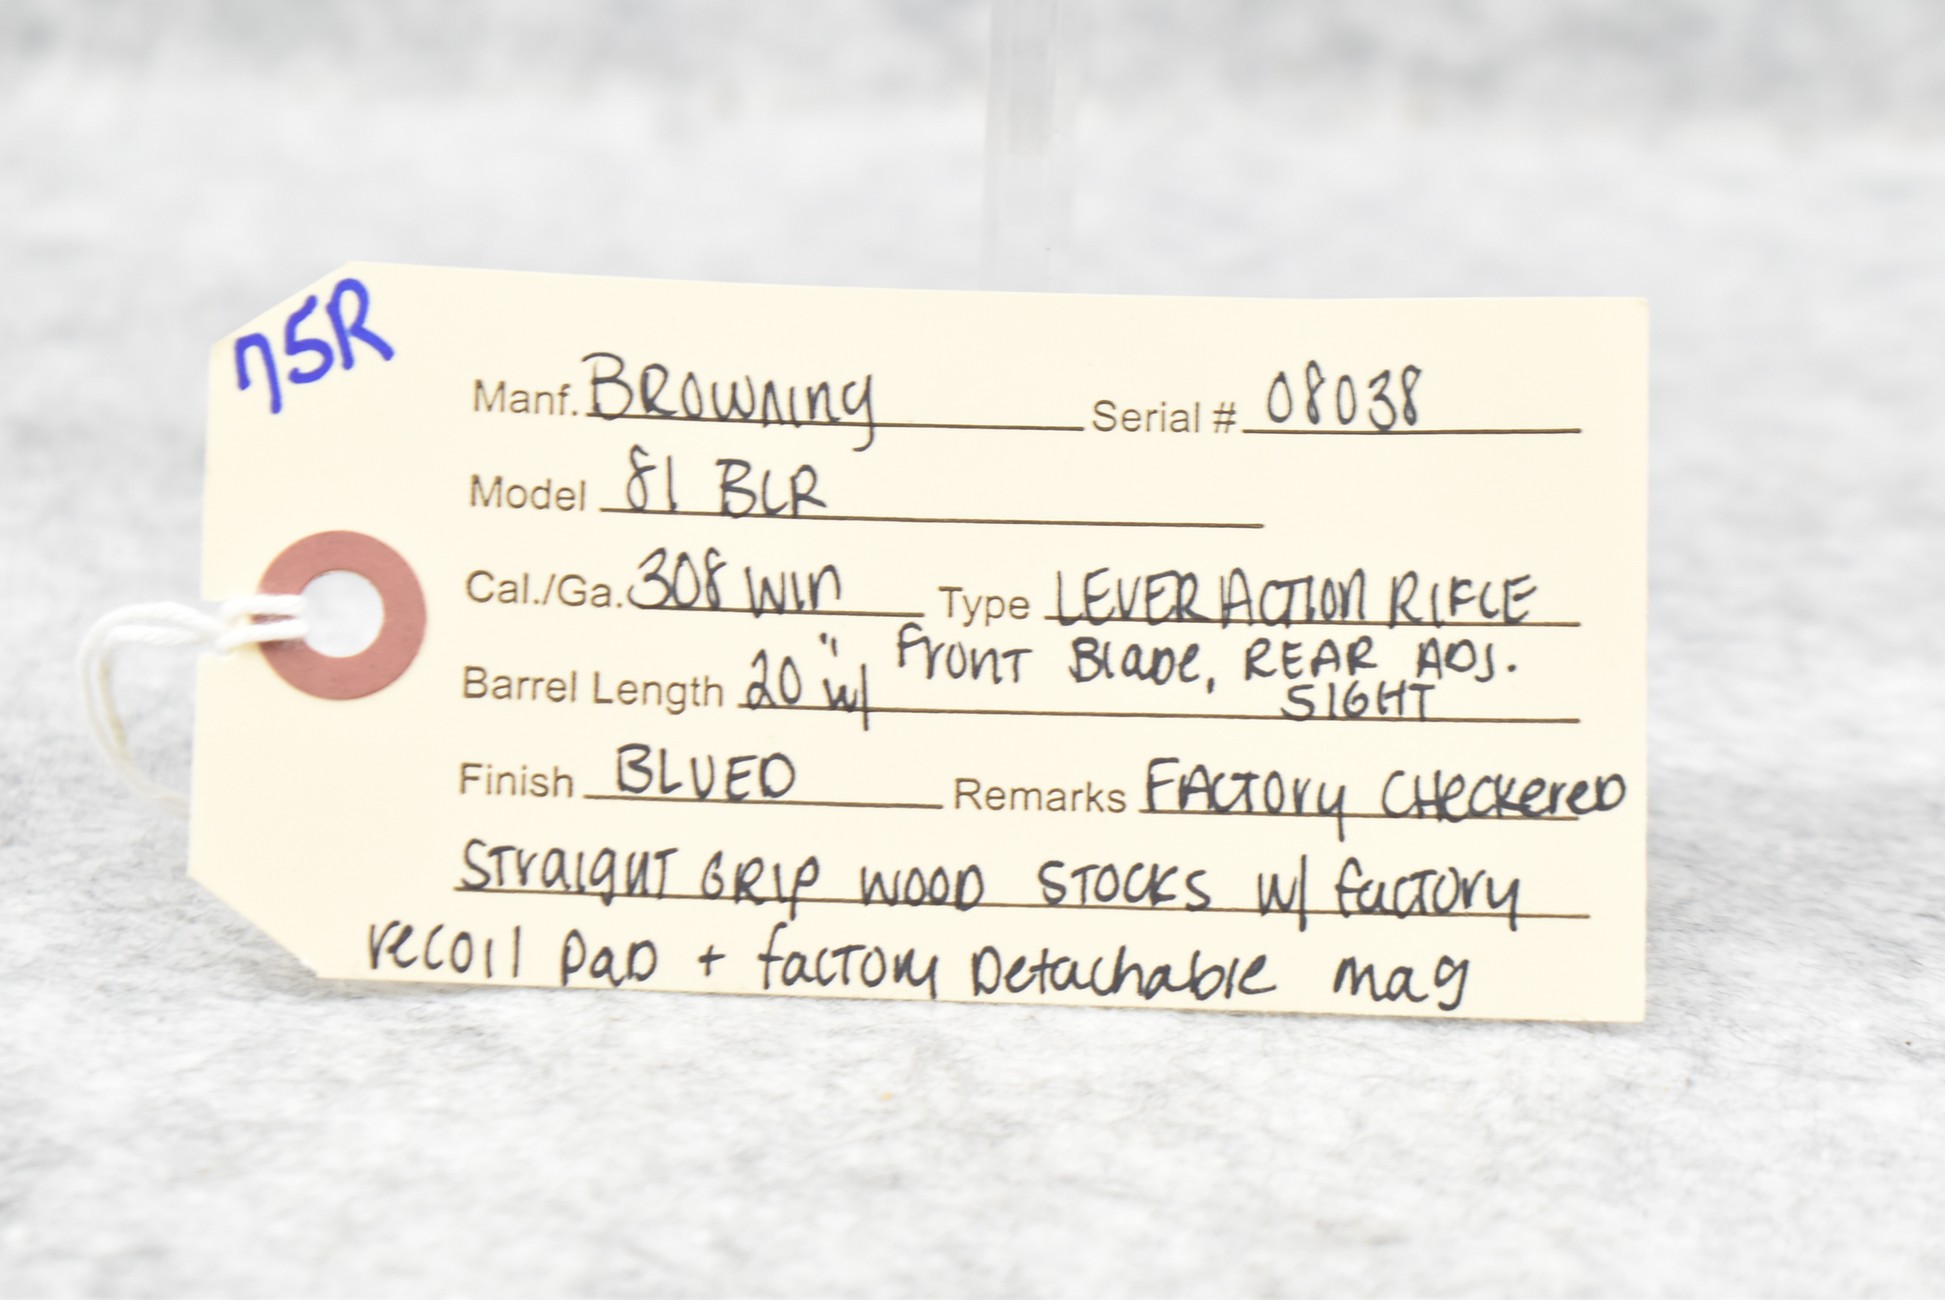 75R
Manf. BROWNING Serial # 08038
Model 81 BLR
Cal./Ga. 308 WIN Type LEVER ACTION RIFLE
Barrel Length 20" w/ Front Blade, REAR ADJ.
SIGHT
Finish BLUED Remarks FACTORY CHECKERED
STRAIGHT GRIP WOOD STOCKS W/ factory
recoil pad + factory Detachable mag